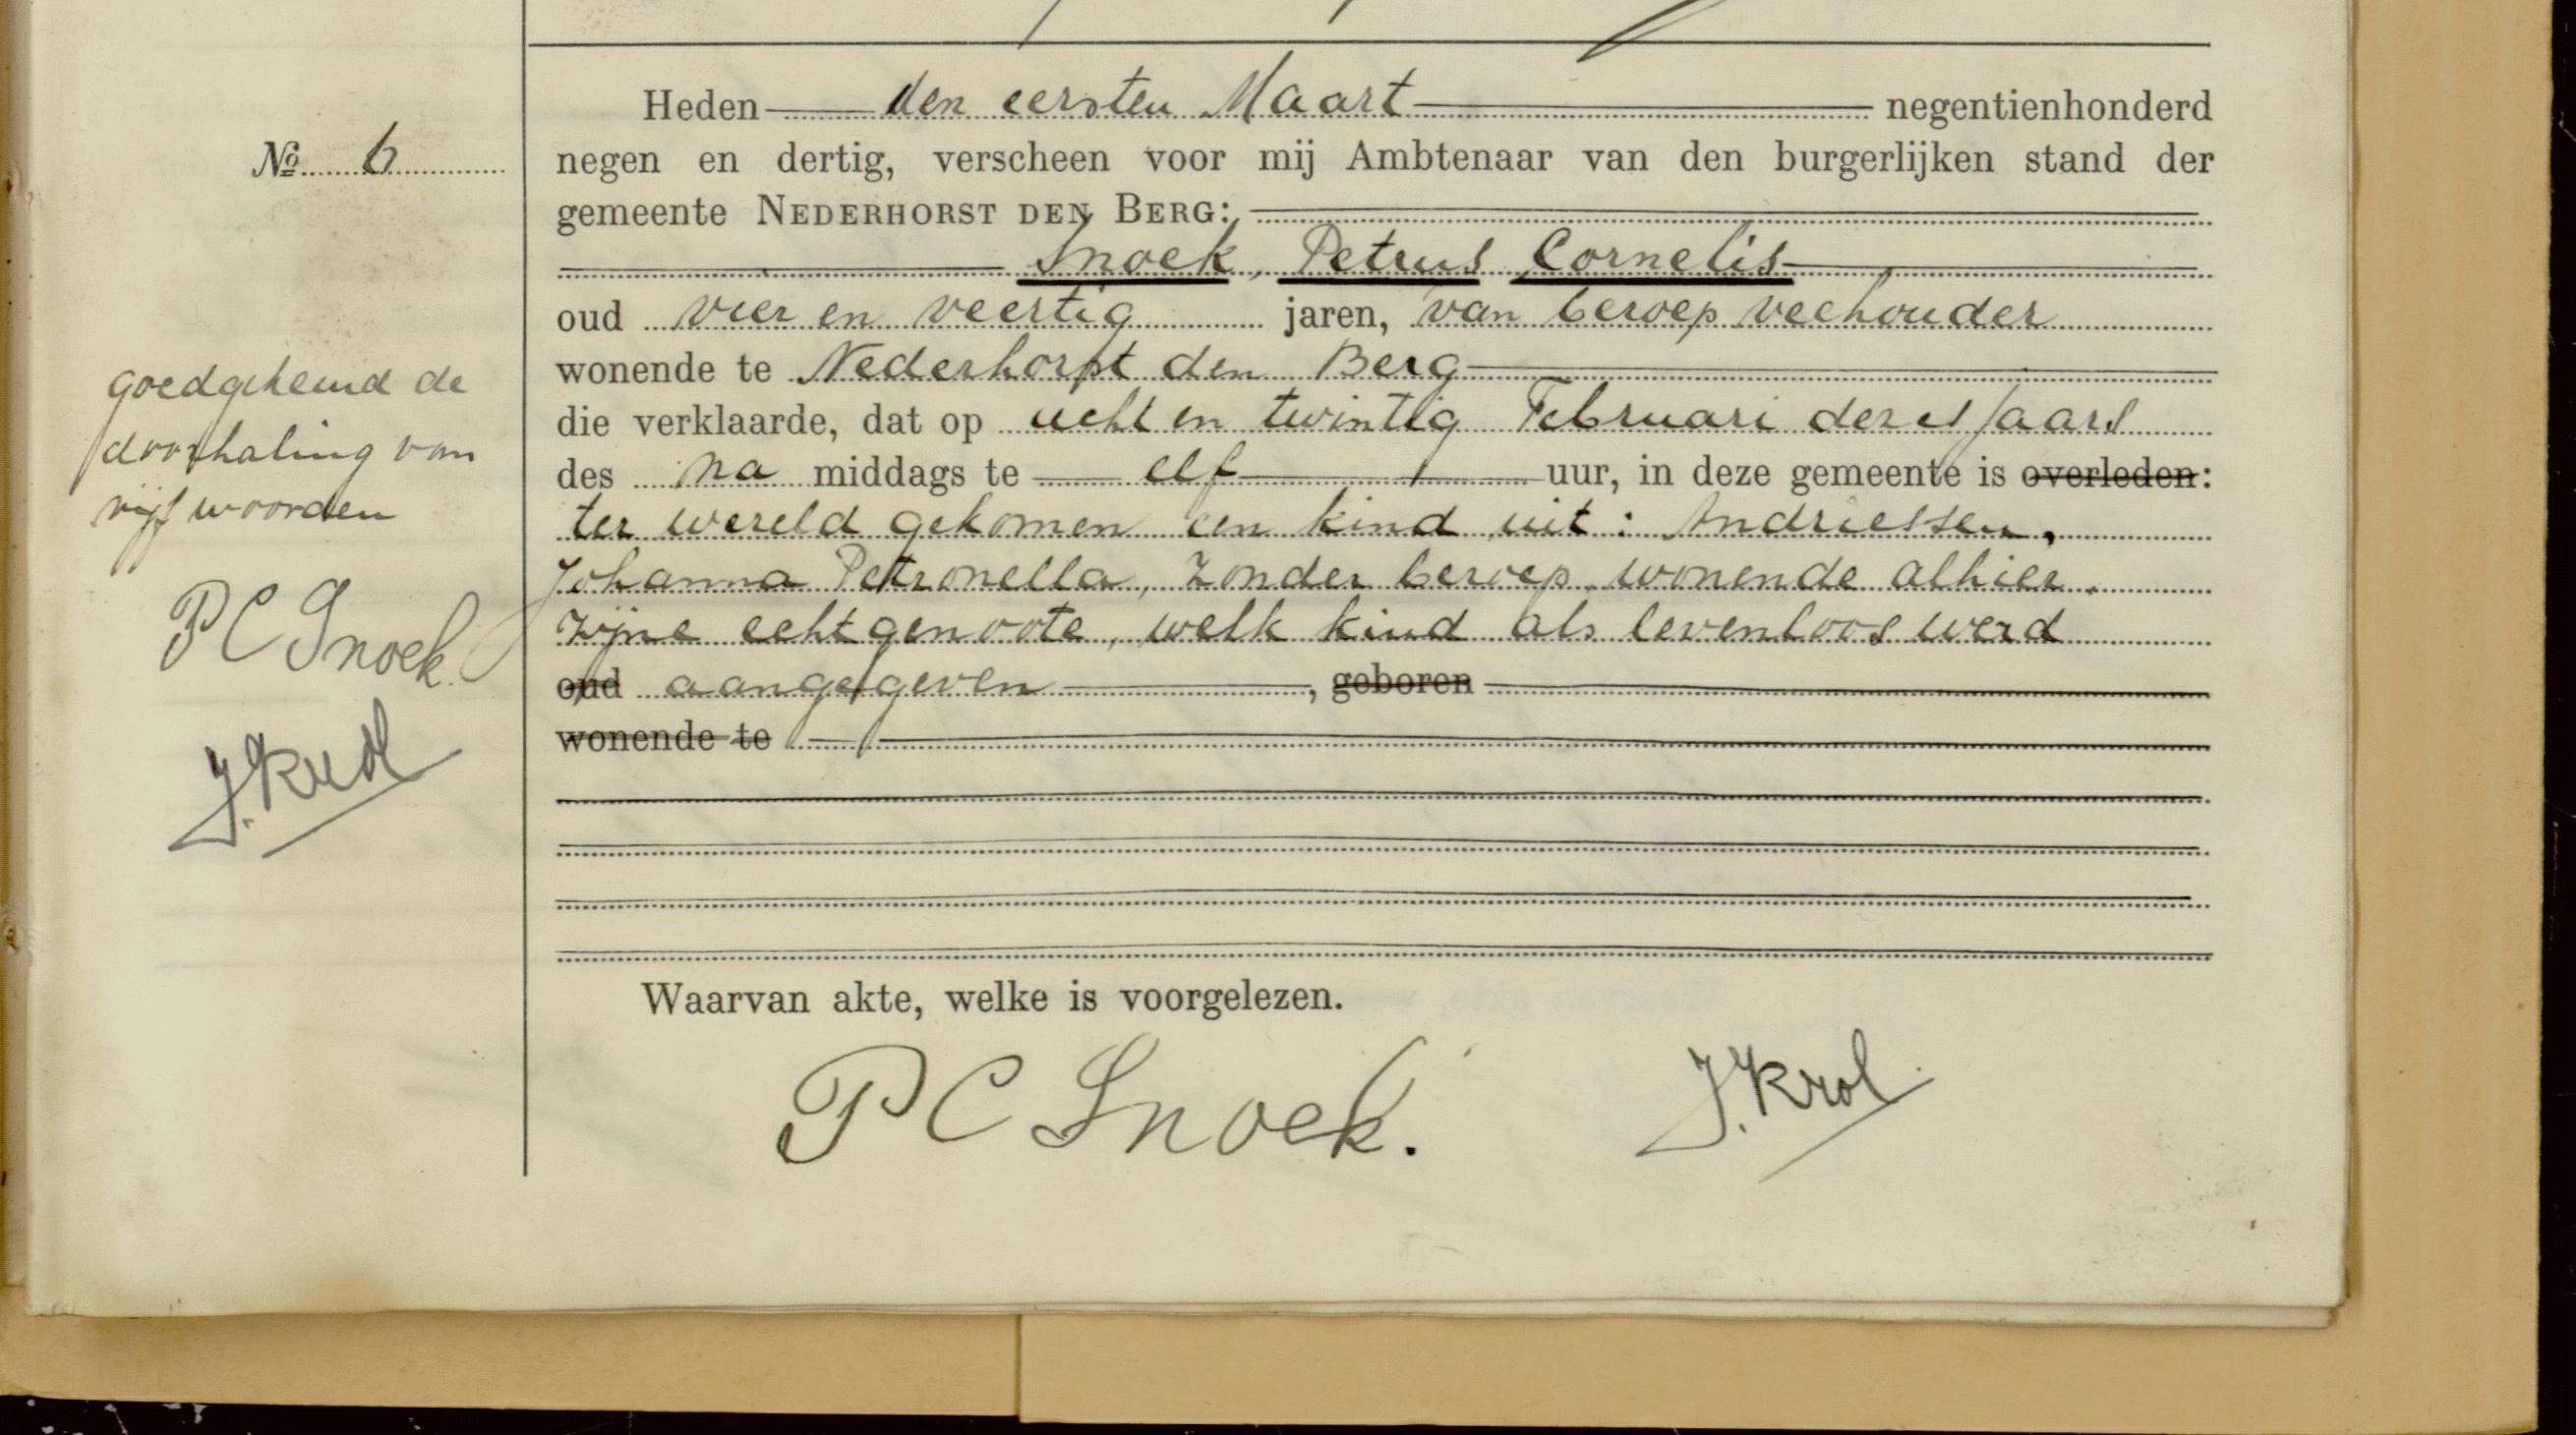 Heden den eersten Maart negentienhonderd
№ 6
negen en dertig, verscheen voor mij Ambtenaar van den burgerlijken stand der
gemeente NEDERHORST DEN BERG:
Snoek, Petrus Cornelis
oud vier en veertig jaren, van beroep veehouder
wonende te Nederhorst den Berg
die verklaarde, dat op acht en twintig Februari dezes jaars
des na middags te elf uur, in deze gemeente is overleden:
ter wereld gekomen een kind uit: Andriessen,
Johanna Petronella, zonder beroep, wonende alhier,
zijne echtgenoote, welk kind als levenloos werd
oud aangegeven, geboren
wonende te
goedgekeurd de
doorhaling van
vijf woorden
P C Snoek
J. Krol
Waarvan akte, welke is voorgelezen.
P C Snoek.
J. Krol